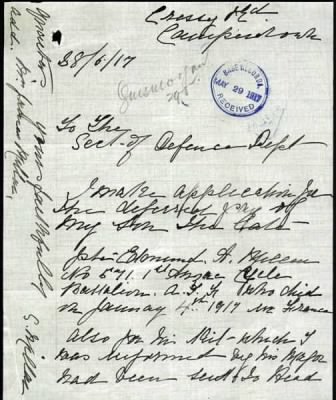 Cressy Rd
Camperdown
28/5/17
BASE RECORDS
MAY 29 1917
RECEIVED
To The
Sect. of Defence Dept
I make application for
the deferred pay of
my Son The Late
John Edmund A. Killen
No 571. 1st Anzac Cycle
Battalion. A.I.F. Who died
on January 4th 1917 in France
also for his Kit - which I
was informed by his Major
had been sent to Head
Yours faithfully